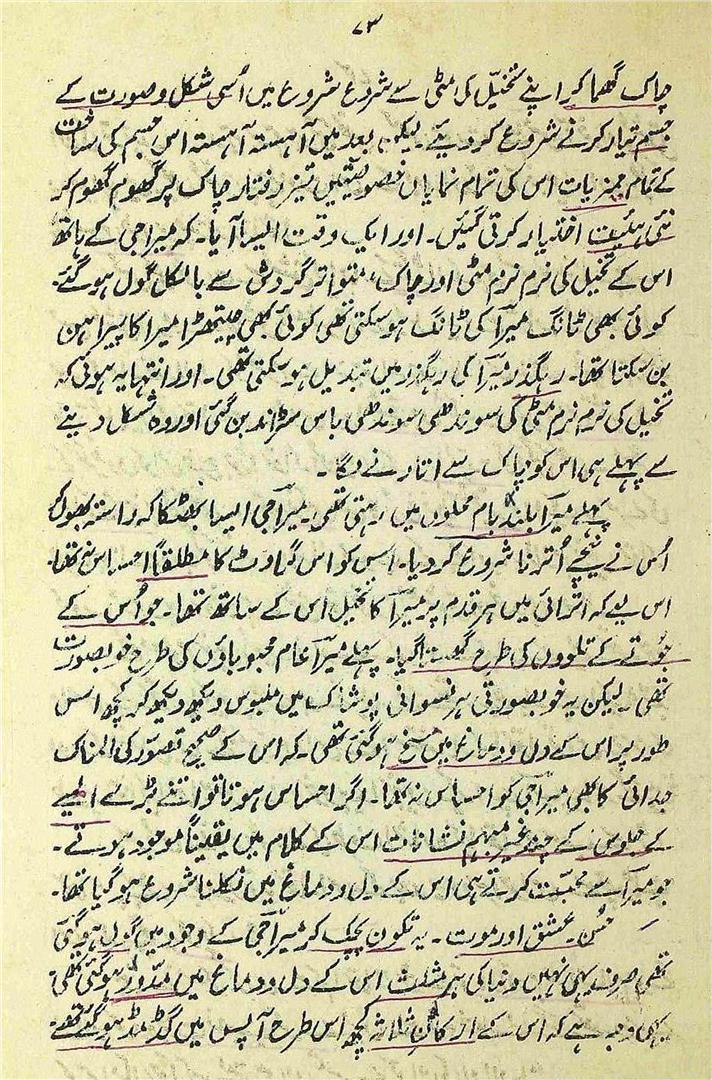 ۷۳
چاک گھما کر اپنے تخیّل کی مٹی سے شروع شروع میں اُسی شکل و صورت کے
جسم تیار کرنے شروع کر دیئے۔ لیکن بعد میں آہستہ آہستہ اس جسم کی ساخت
کے تمام ممیزات اس کی تمام نمایاں خصوصیتیں تیز رفتار چاک پر گھوم گھوم کر
نئی ہئیت اختیار کرتی گئیں۔ اور ایک وقت ایسا آیا۔ کہ میرا جی کے ہاتھ
اس کے تخیل کی نرم نرم مٹی اور چاک، متواتر گردش سے بالکل گول ہو گئے۔
کوئی بھی ٹانگ میرا کی ٹانگ ہو سکتی تھی کوئی بھی چیتھڑا میرا کا پیراہن
بن سکتا تھا۔ رہگذر میرا کی رہگذر میں تبدیل ہو سکتی تھی۔ اور انتہا یہ ہوئی کہ
تخیل کی نرم نرم مٹی کی سوندھی سوندھی باس سڑاند بن گئی اور وہ شکل دینے
سے پہلے ہی اس کو چاک سے اتارنے لگا۔
پہلے میرا بلند بام محلوں میں رہتی تھی۔ میرا جی ایسا بھٹکا کہ راستہ بھول کر
اُس نے نیچے اُترنا شروع کر دیا۔ اس کو اس گراوٹ کا مطلقاً احساس نہ تھا۔
اس لیے کہ اترائی میں ہر قدم پر میرا کا تخیل اس کے ساتھ تھا۔ جو اُس کے
جُوتے کے تلووں کی طرح گھستا گیا۔ پہلے میرا عام محبوباؤں کی طرح خوبصورت
تھی۔ لیکن یہ خوبصورتی ہر نسوانی پوشاک میں ملبوس دیکھ دیکھ کر کچھ اس
طور پر اس کے دل و دماغ میں مسخ ہو گئی تھی۔ کہ اس کے صحیح تصوّر کی المناک
جدائی کا بھی میرا جی کو احساس نہ تھا۔ اگر احساس ہوتا تو اتنے بڑے المیے
کے جلوس کے چند غیر مبہم نشانات اس کے کلام میں یقیناً موجود ہوتے۔
جو میرا سے محبّت کرتے ہی اس کے دل و دماغ میں نکلنا شروع ہو گیا تھا۔
حُسن۔ عشق اور موت۔ یہ تکون پچک کر میرا جی کے وجود میں گول ہو گئی
تھی صرف یہی نہیں دنیا کی ہر مثلث اس کے دل و دماغ میں مدّور ہو گئی تھی
یہی وجہ ہے کہ اس کے ارکانِ ثلاثہ کچھ اس طرح آپس میں گڈ مڈ ہو گئے تھے۔